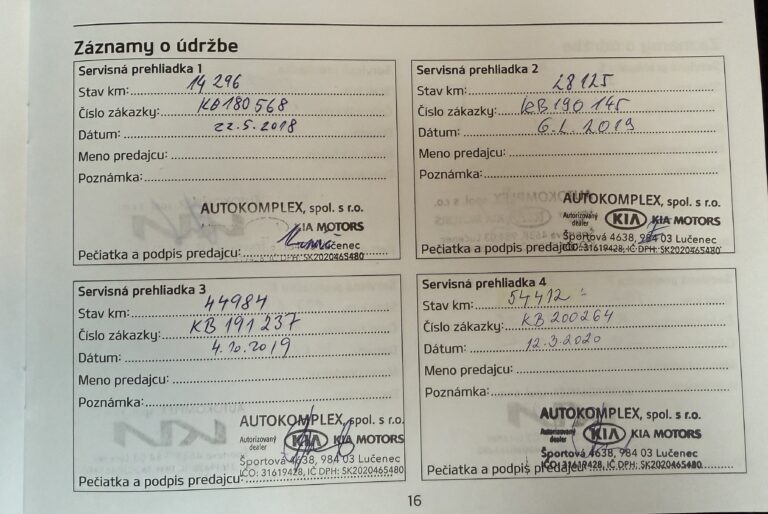 Záznamy o údržbe
Servisná prehliadka 1
Stav km: 14 296
Číslo zákazky: KB180 568
Dátum: 22.5.2018
Meno predajcu:
Poznámka:
AUTOKOMPLEX, spol. s r.o.
KIA MOTORS
Lučenec
Pečiatka a podpis predajcu: IČ DPH: SK2020465480
Servisná prehliadka 2
Stav km: 28125
Číslo zákazky: KB190 145
Dátum: 6.2.2019
Meno predajcu:
Poznámka:
AUTOKOMPLEX, spol. s r.o.
Autorizovaný dealer KIA KIA MOTORS
Športová 4638, 984 03 Lučenec
Pečiatka a podpis predajcu: IČO: 31619428, IČ DPH: SK2020465480
Servisná prehliadka 3
Stav km: 44984
Číslo zákazky: KB 191 237
Dátum: 4.10.2019
Meno predajcu:
Poznámka:
AUTOKOMPLEX, spol. s r.o.
Autorizovaný dealer KIA KIA MOTORS
Športová 4638, 984 03 Lučenec
IČO: 31619428, IČ DPH: SK2020465480
Pečiatka a podpis predajcu:
Servisná prehliadka 4
Stav km: 54412
Číslo zákazky: KB 200264
Dátum: 12.3.2020
Meno predajcu:
Poznámka:
AUTOKOMPLEX, spol. s r.o.
Autorizovaný dealer KIA KIA MOTORS
Športová 4638, 984 03 Lučenec
IČO: 31619428, IČ DPH: SK2020465480
Pečiatka a podpis predajcu:
16